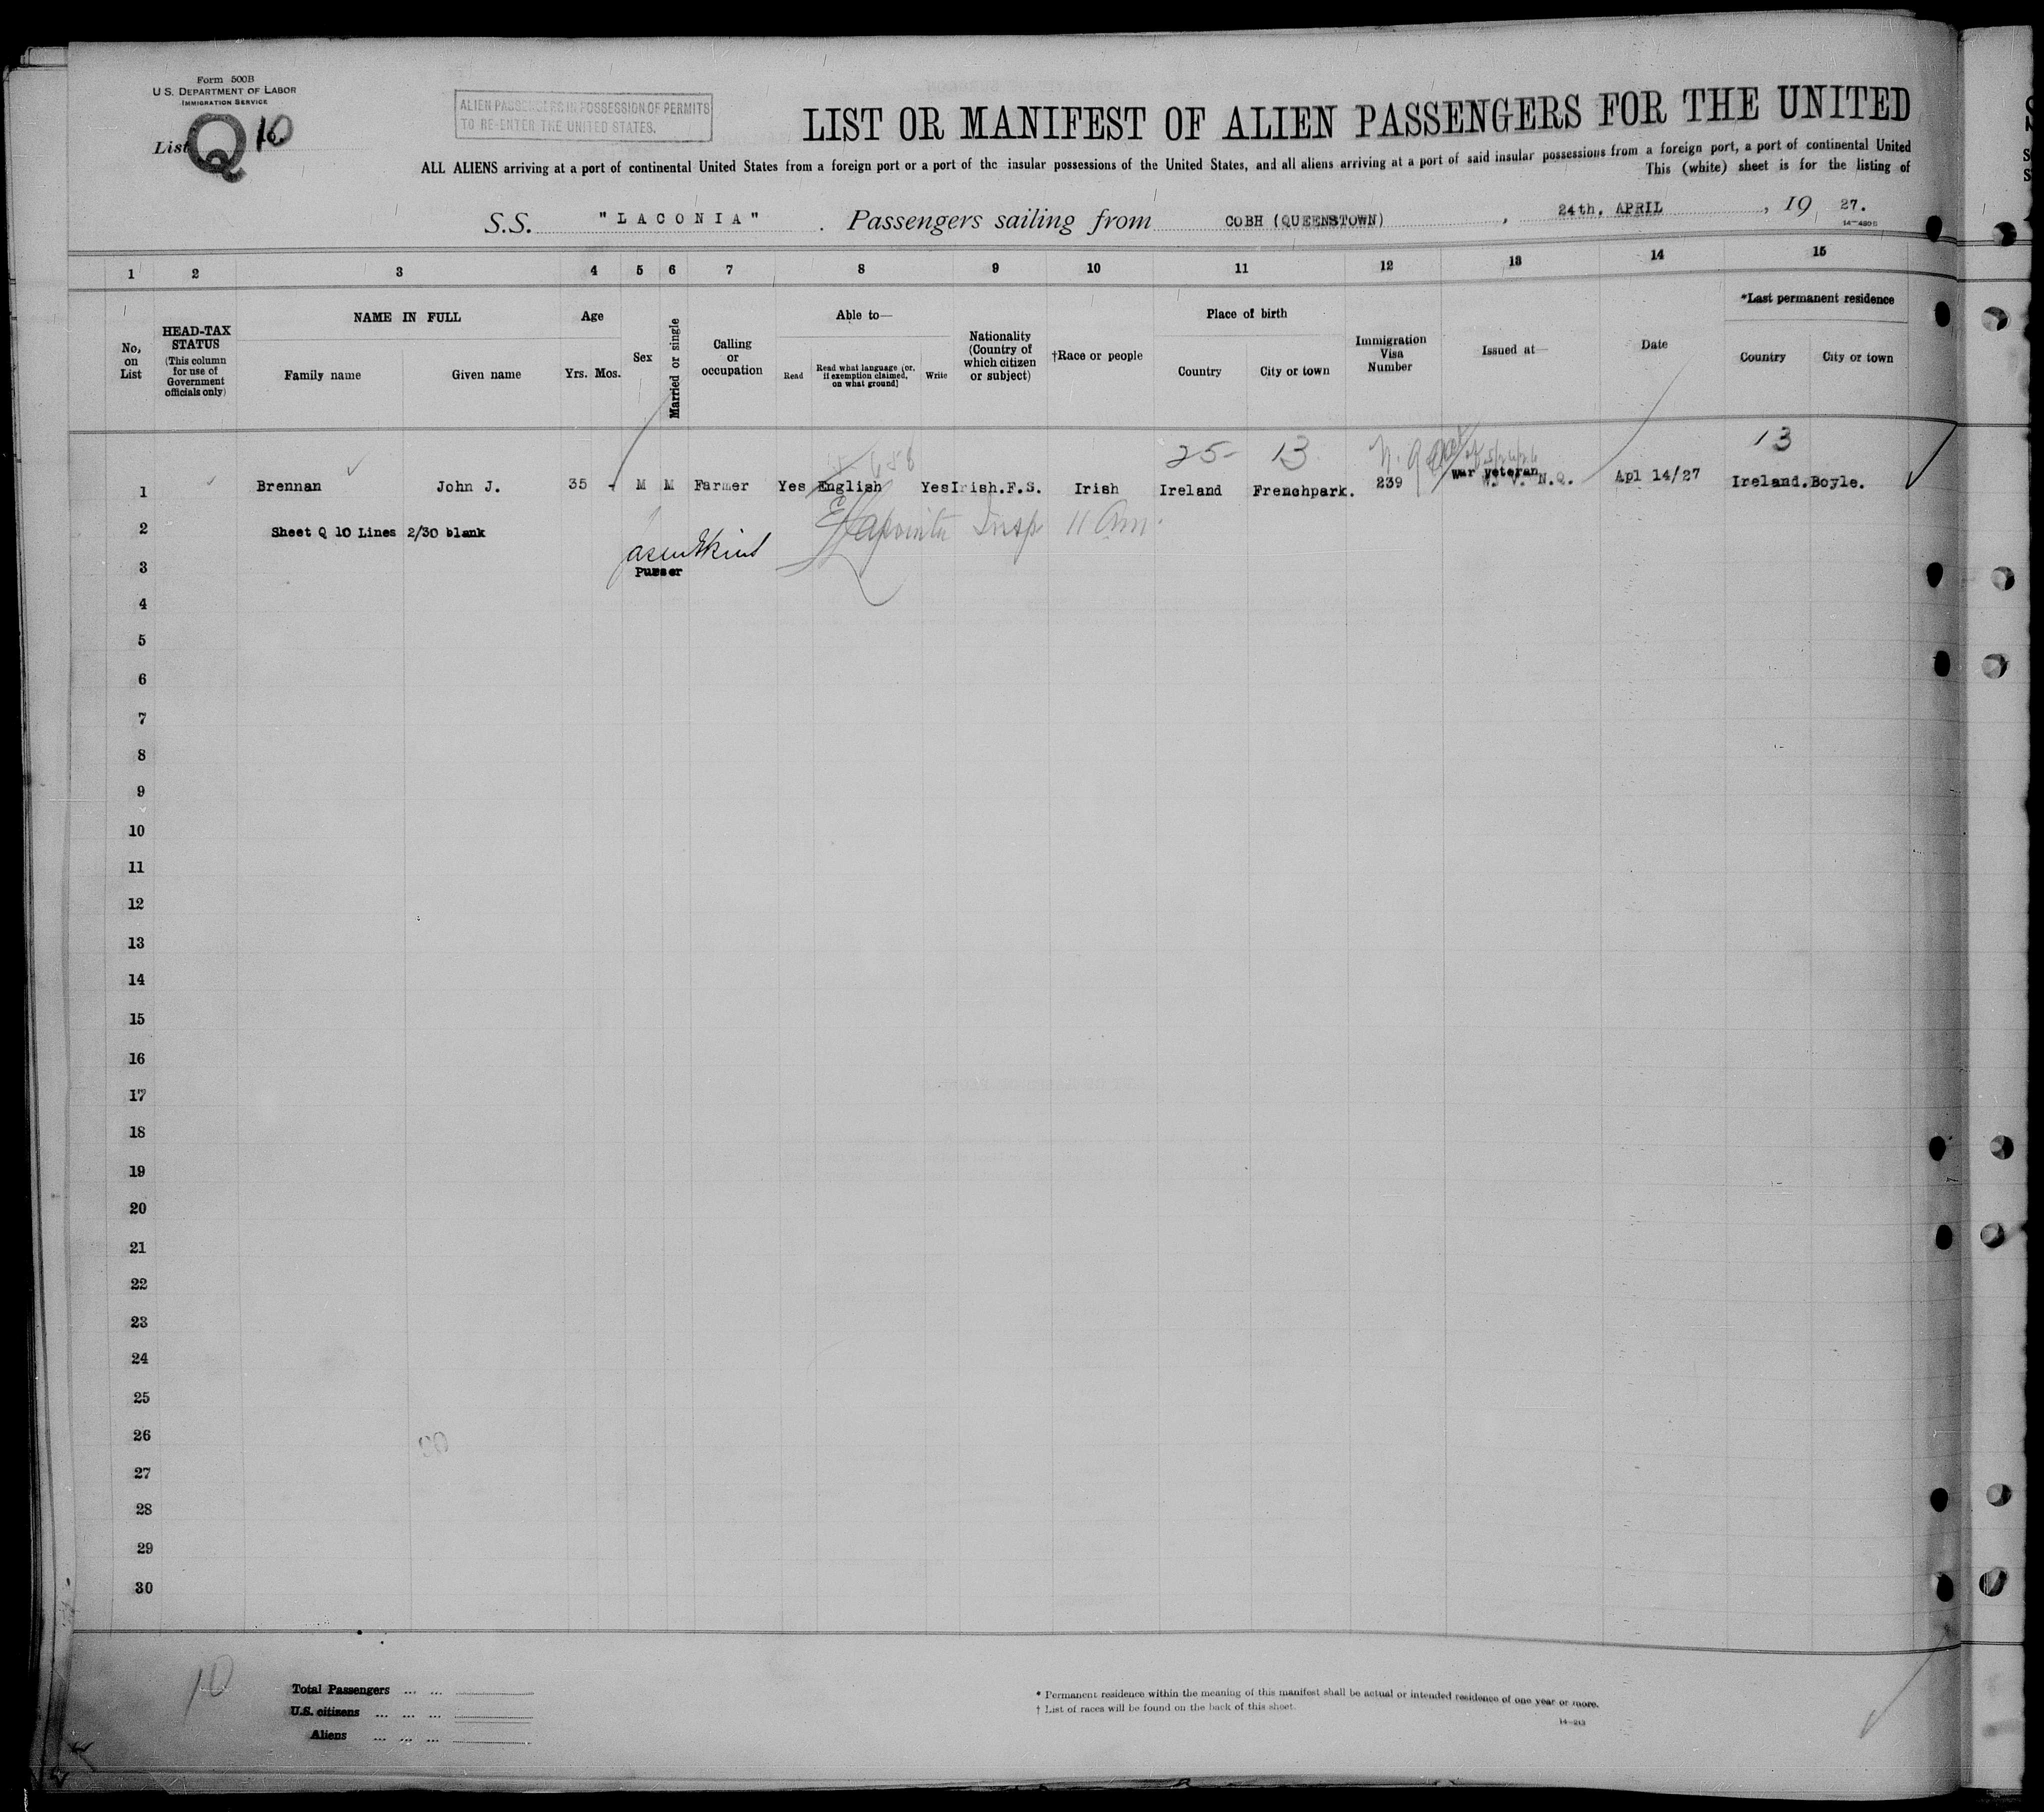 Form 500B
U.S. DEPARTMENT OF LABOR
IMMIGRATION SERVICE
List Q 10
ALIEN PASSENGERS IN POSSESSION OF PERMITS
TO RE-ENTER THE UNITED STATES.
LIST OR MANIFEST OF ALIEN PASSENGERS FOR THE UNITED
ALL ALIENS arriving at a port of continental United States from a foreign port or a port of the insular possessions of the United States, and all aliens arriving at a port of said insular possessions from a foreign port, a port of continental United
This (white) sheet is for the listing of
S.S. "LACONIA". Passengers sailing from COBH (QUEENSTOWN), 24th, APRIL, 19 27.
1 2 3 4 5 6 7 8 9 10 11 12 13 14 15
No. on List
HEAD-TAX STATUS
(This column for use of Government officials only)
NAME IN FULL
Family name Given name
Age
Yrs. Mos.
Sex
Married or single
Calling or occupation
Able to—
Read
Read what language [or, if exemption claimed, on what ground]
Write
Nationality (Country of which citizen or subject)
†Race or people
Place of birth
Country City or town
Immigration Visa Number
Issued at—
Date
*Last permanent residence
Country City or town
25- 13 13
war veteran
1 Brennan John J. 35 - M M Farmer Yes English Yes Irish.F.S. Irish Ireland Frenchpark. 239 N.Q. Apl 14/27 Ireland. Boyle.
2 Sheet Q 10 Lines 2/30 blank
Insp 11 Am.
3 Purser
4
5
6
7
8
9
10
11
12
13
14
15
16
17
18
19
20
21
22
23
24
25
26
27
28
29
30
10
Total Passengers ... ...
U.S. citizens ... ... ...
Aliens ... ... ...
* Permanent residence within the meaning of this manifest shall be actual or intended residence of one year or more.
† List of races will be found on the back of this sheet.
14-213